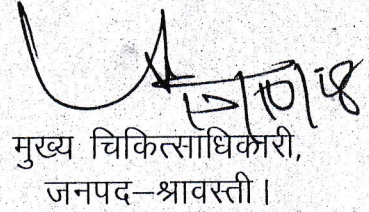 17/10/18
मुख्य चिकित्साधिकारी,
जनपद–श्रावस्ती।